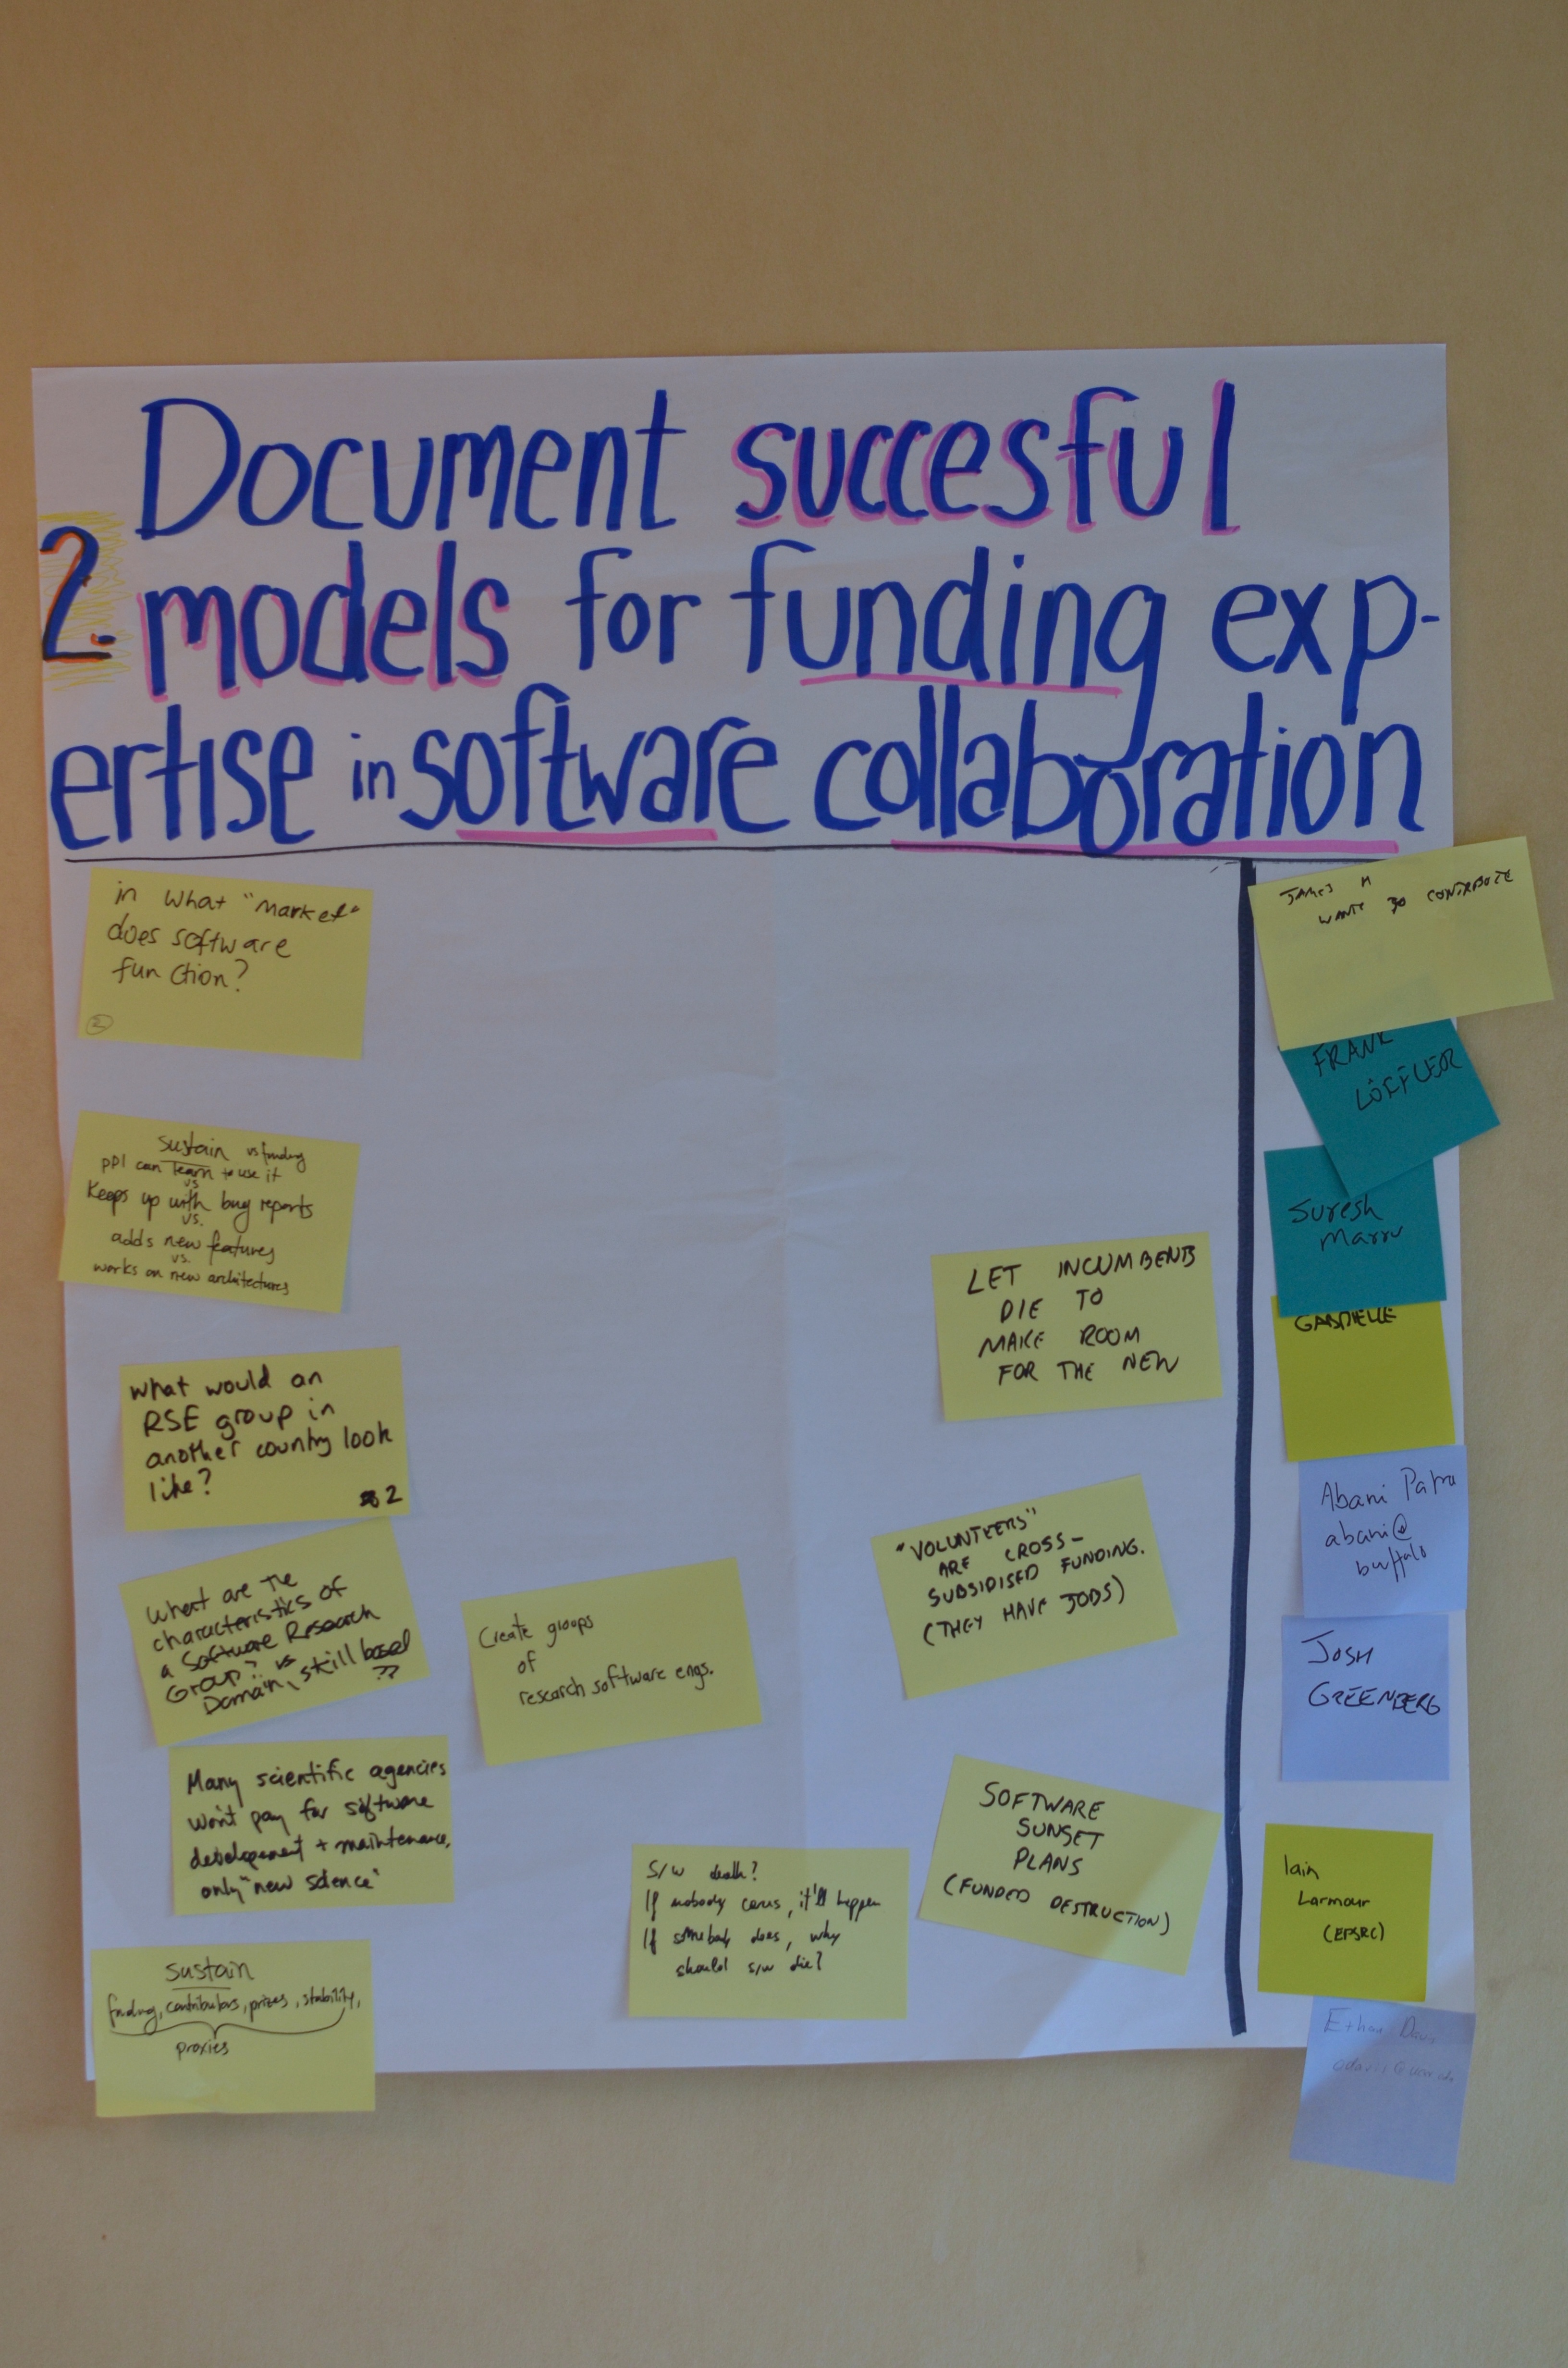 Document succesful
2. models for funding exp-
ertise in software collaboration
in what "market"
does software
function?
2
sustain vs funding
ppl can learn to use it
vs
Keeps up with bug reports
vs.
adds new features
vs.
works on new architectures
What would an
RSE group in
another country look
like?
2
What are the
characteristics of
a Software Research
Group? vs
Domain, skill based
??
Many scientific agencies
won't pay for software
development + maintenance,
only "new science"
sustain
funding, contributors, prizes, stability,
proxies
Create groups
of
research software engs.
S/W death?
If nobody cares, it'll happen
If somebody does, why
should s/w die?
LET INCUMBENTS
DIE TO
MAKE ROOM
FOR THE NEW
"VOLUNTEERS"
ARE CROSS-
SUBSIDISED FUNDING.
(THEY HAVE JOBS)
SOFTWARE
SUNSET
PLANS
(FUNDED DESTRUCTION)
JAMES H
WANTS TO CONTRIBUTE
FRANK
LÖFFLER
Suresh
Marru
GABRIELLE
Abani Patra
abani@
buffalo
JOSH
GREENBERG
Iain
Larmour
(EPSRC)
Ethan Davis